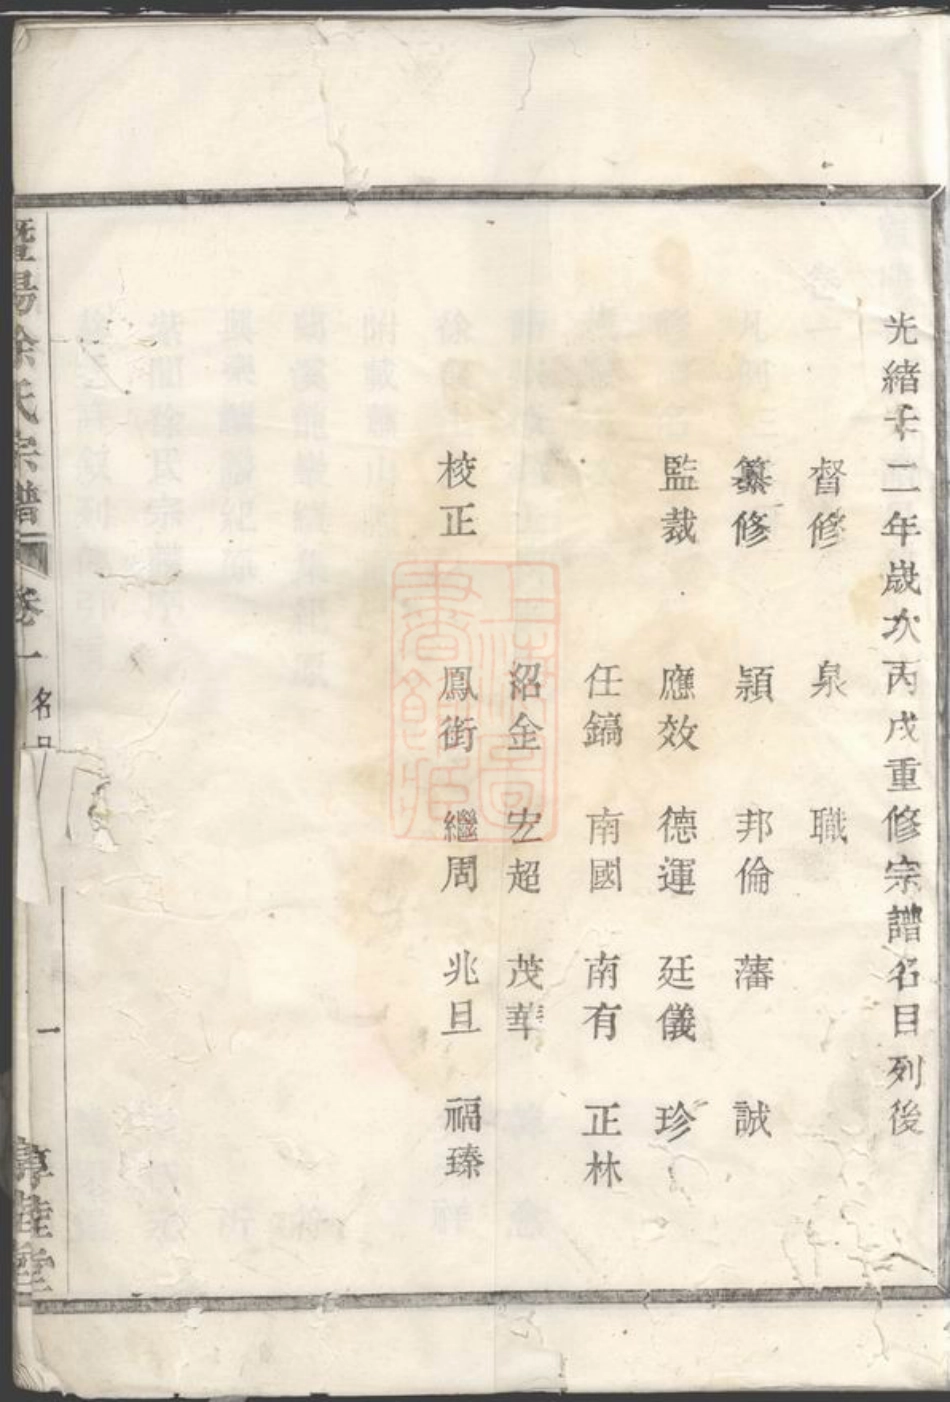 光緒十二年歲次丙戌重修宗譜名目列後
督修 泉 職
纂修 穎 邦倫 藩 誠
監裁 應效 德運 廷儀 珍
任鎬 南國 南有 正林
沼金 宏超 茂華
校正 鳳街 繼周 兆旦 福臻
暨陽徐氏宗譜 卷一 名目 一 睦堂
上海圖書館藏